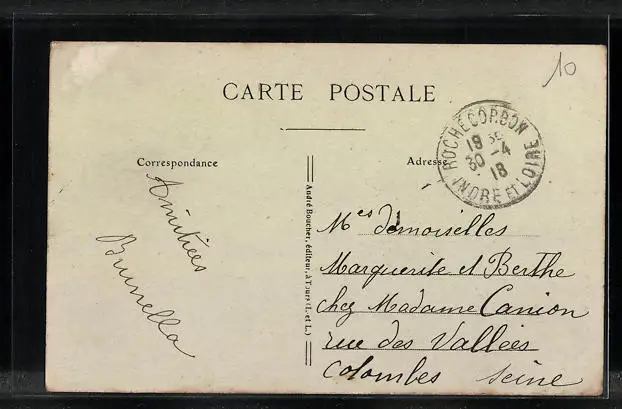 10
CARTE POSTALE
Correspondance
Adresse
ROCHECORBON
19 30
30 - 4
18
INDRE ET LOIRE
Amitiées
Brunella
André Bouchet, éditeur, à Tours (I. et L.)
Mes demoiselles
Marguerite et Berthe
chez Madame Canion
rue des Vallées
Colombes Seine